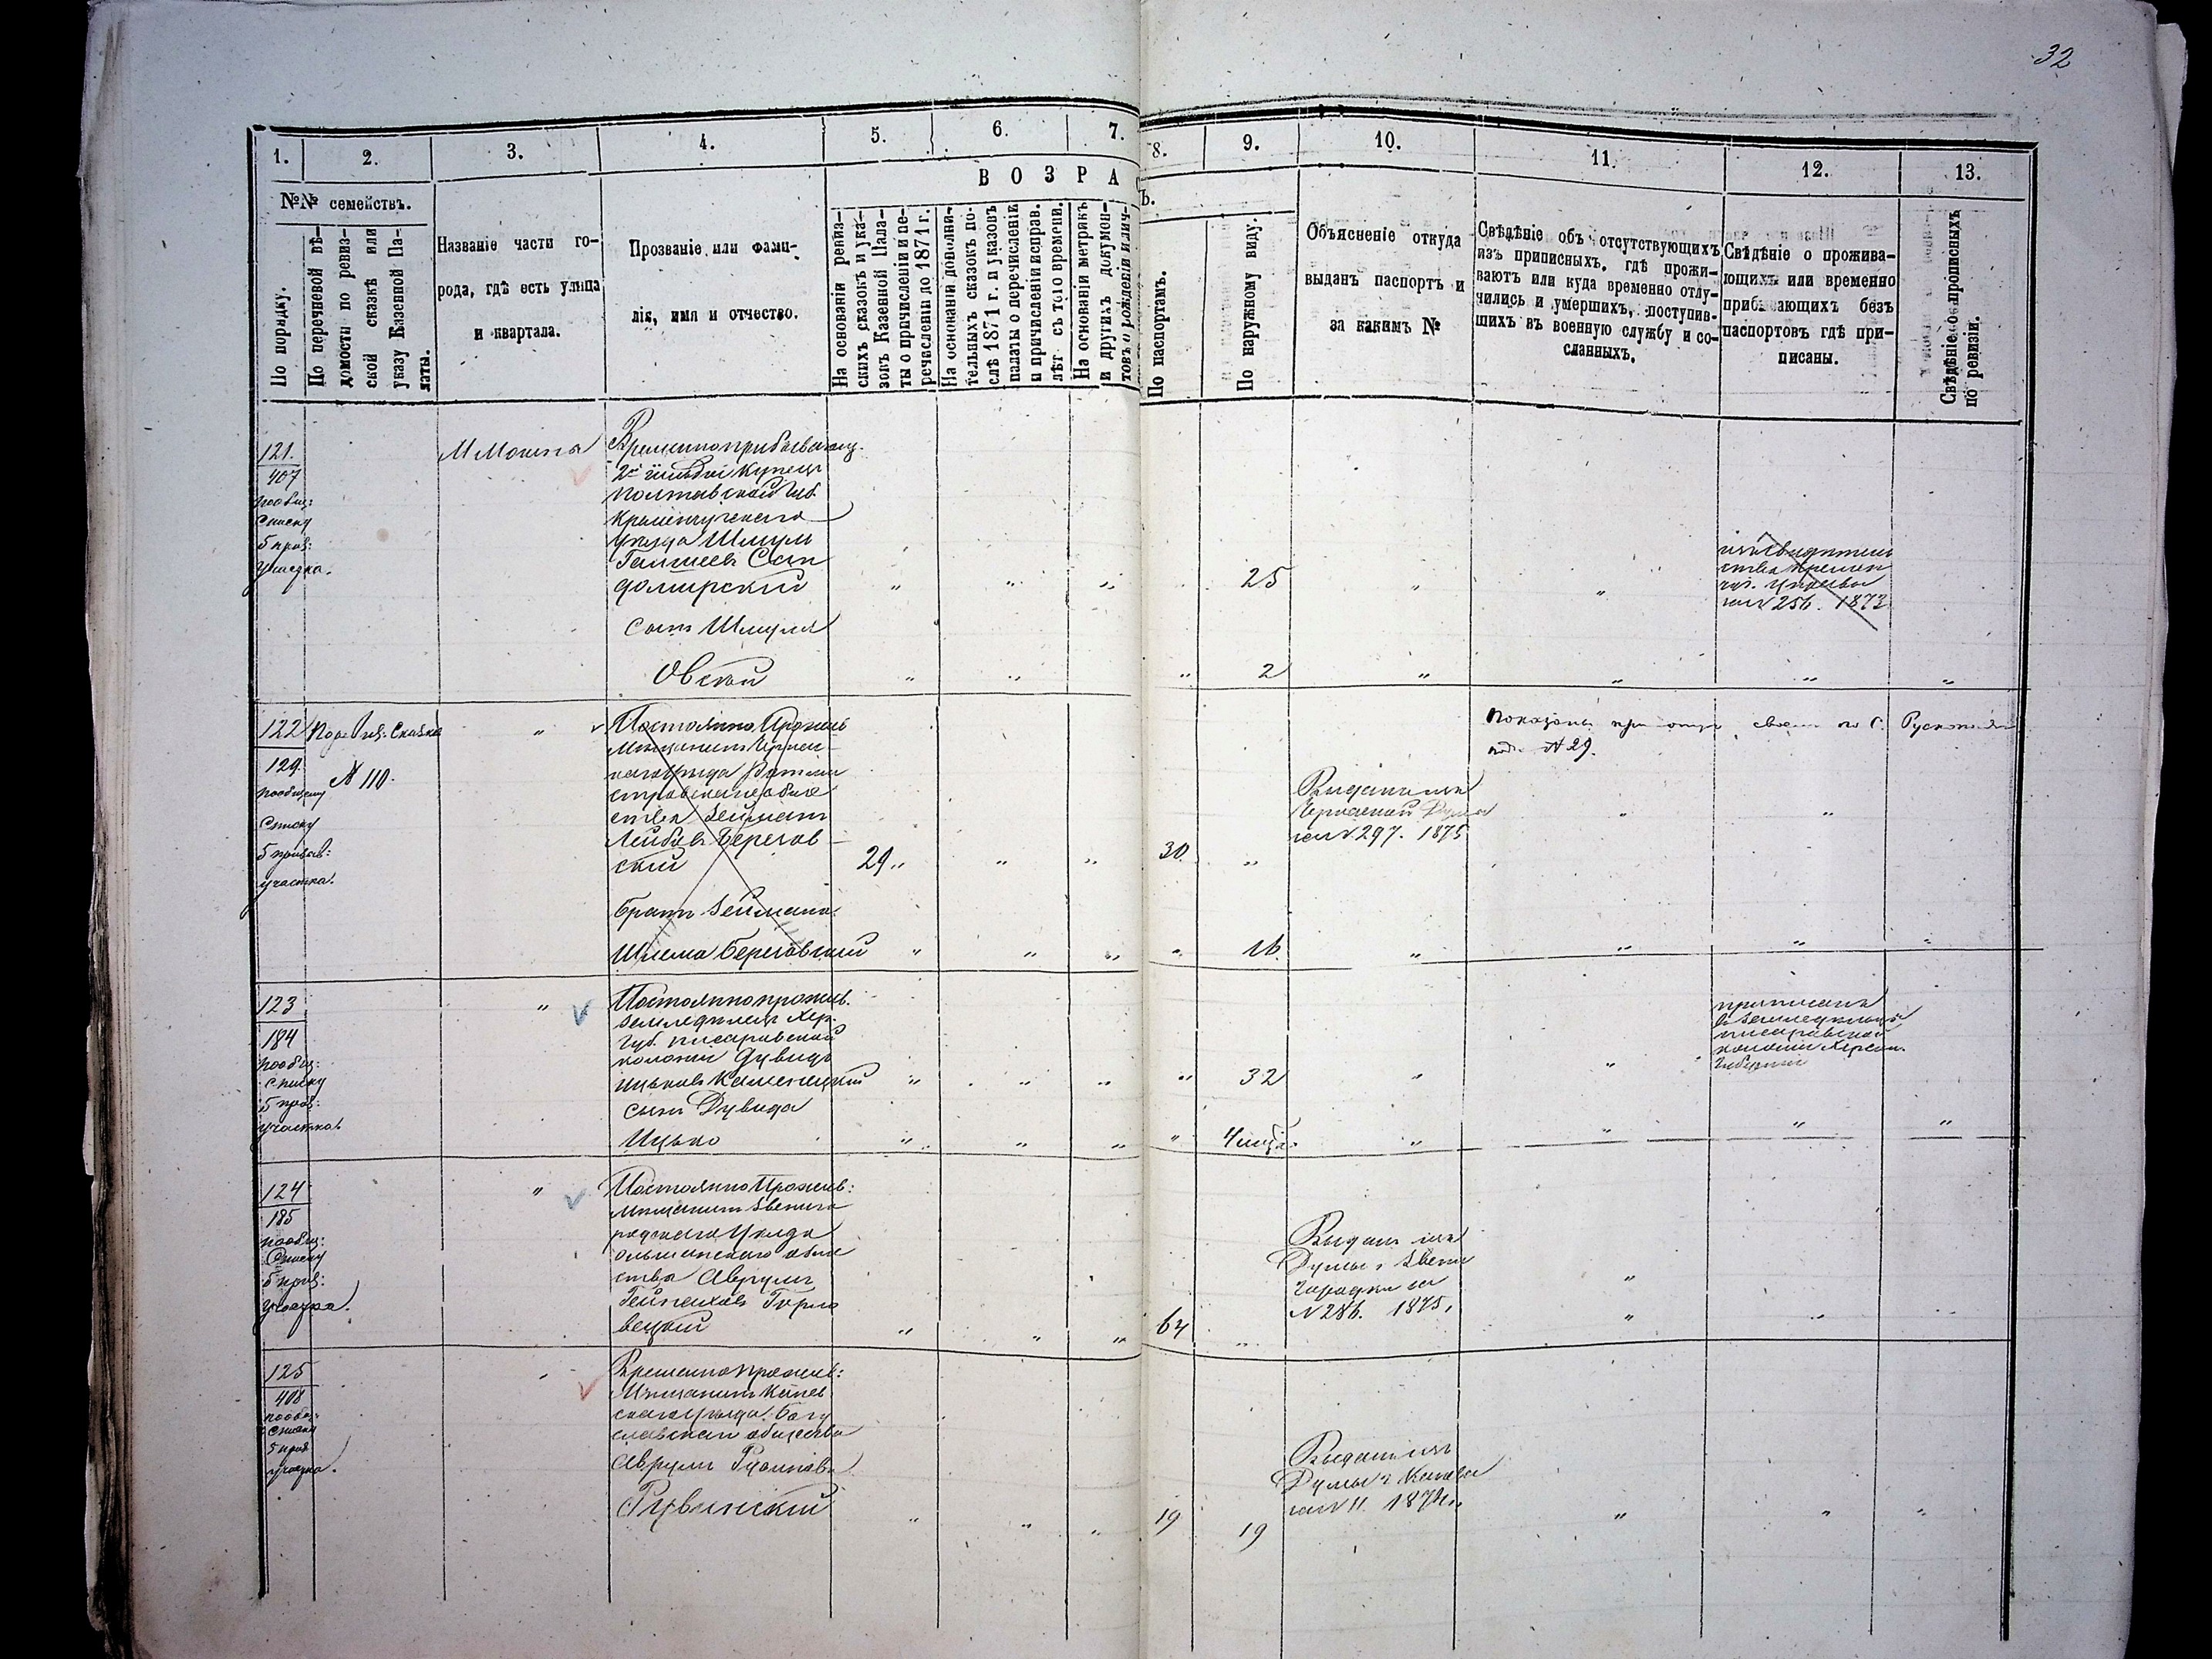 32
1.
2.
3.
4.
5.
6.
7.
8.
9.
10.
11.
12.
13.
№№ семействъ.
По порядку.
По перечневой вѣ-
домости по ревиз-
ской сказкѣ или
указу Казенной Па-
латы.
Названіе части го-
рода, гдѣ есть улица
и квартала.
Прозваніе или фами-
лія, имя и отчество.
В О З Р А С Т Ъ.
На основаніи ревиз-
скихъ сказокъ и ука-
зовъ Казенной Пала-
ты о причисленіи и пе-
речисленіи до 1871 г.
На основаніи дополни-
тельныхъ сказокъ по-
слѣ 1871 г. и указовъ
палаты о перечисленіи
и причисленіи исправ.
лѣт съ того времени.
На основаніи метрикъ
и другихъ докумен-
товъ о рожденіи и лич-
По паспортамъ.
По наружному виду.
Объясненіе откуда
выданъ паспортъ и
за какимъ №
Свѣдѣніе объ отсутствующихъ
изъ приписныхъ, гдѣ прожи-
ваютъ или куда временно отлу-
чились и умершихъ, поступив-
шихъ въ военную службу и со-
сланныхъ.
Свѣдѣніе о прожива-
ющихъ или временно
прибывающихъ безъ
паспортовъ гдѣ при-
писаны.
Свѣдѣніе о прописныхъ
по ревизіи.
121.
407
пообщ:
Списку
5 приз:
Участка.
Временно прибывающ.
2й гильдіи Купецъ
Полтавской Губ.
Кременчугскаго
уѣзда Шмуль
Сан
домирский
25
1873
сынъ Шмуля
Овсей
2
122
129.
пообщему
Списку
5 призыв:
участка.
№ 110.
Постоянно Прожив
Мѣщанинъ Черкас
скаго Уѣзда
обще
ства Зейманъ
Лейбовъ Берегов-
ский
29
30
Выданъ изъ
Черкаской Думы
за № 297. 1875
Показанъ при отцѣ своем по С.
под № 29.
Братъ Зеймана
Шлема Береговский
16
123
184
пообщ:
списку
5 приз:
участка
Постоянно прожив.
Земледѣлецъ Хер.
Губ.
колоніи Дувидъ
Ицьковъ Каменецкій
32
приписанъ
колоніи Херсон.
Губерніи
сынъ Дувида
Ицько
124
185
пообщ:
Списку
5 приз:
Участка.
Постоянно Прожив:
Мѣщанинъ Звениго
родскаго Уѣзда
Ольшанскаго обще
ства Аврумъ
64
Выданъ изъ
Думы г. Звени
городки за
№ 286. 1875.
125
408
пообщ:
списку
5 приз
участка.
Временно прожив:
Мѣщанинъ Канев
скаго Уѣзда Богу
славскаго общества
Аврумъ
19
19
Выданъ изъ
Думы г. Канева
за № 11. 1874.